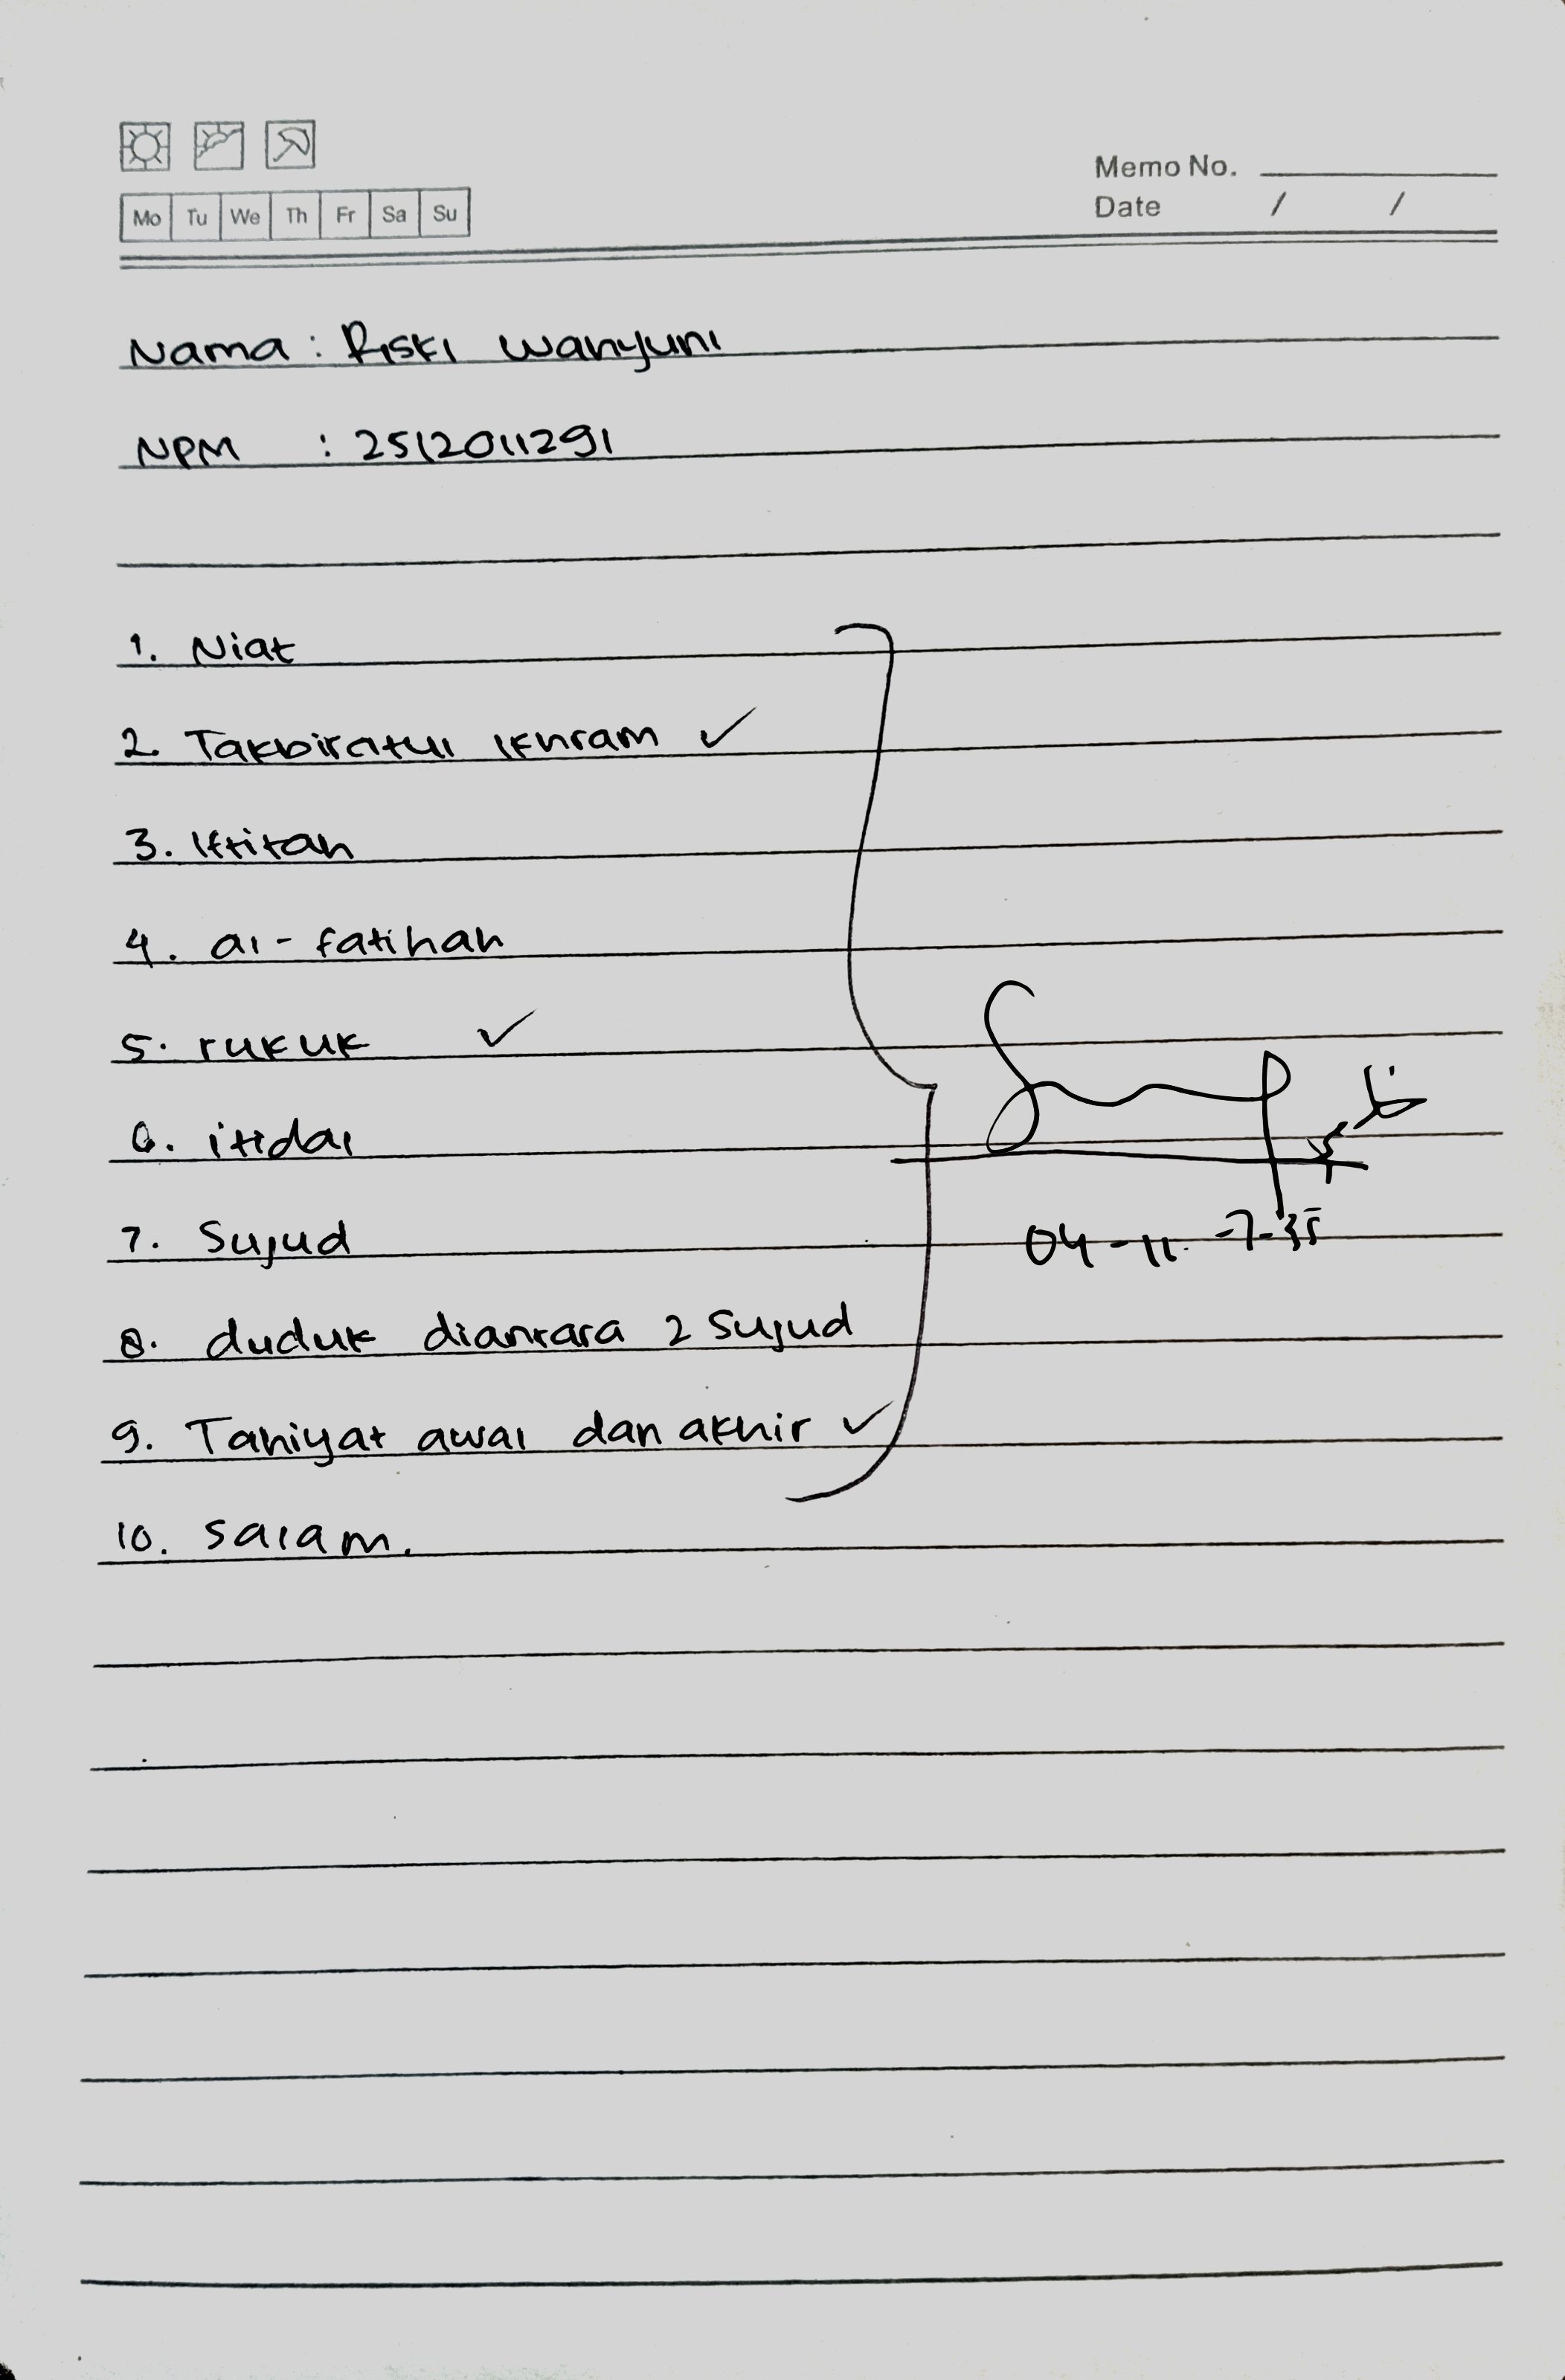 Mo Tu We Th Fr Sa Su
Memo No.
Date / /
Nama : Riski Wahyuni
NPM : 2512011291
1. Niat
2. Takbiratul Ikhram ✓
3. Iftitah
4. al-fatihah
5. rukuk ✓
6. itidal
7. Sujud
8. duduk diantara 2 Sujud
9. Tahiyat awal dan akhir ✓
10. salam.
04-11-